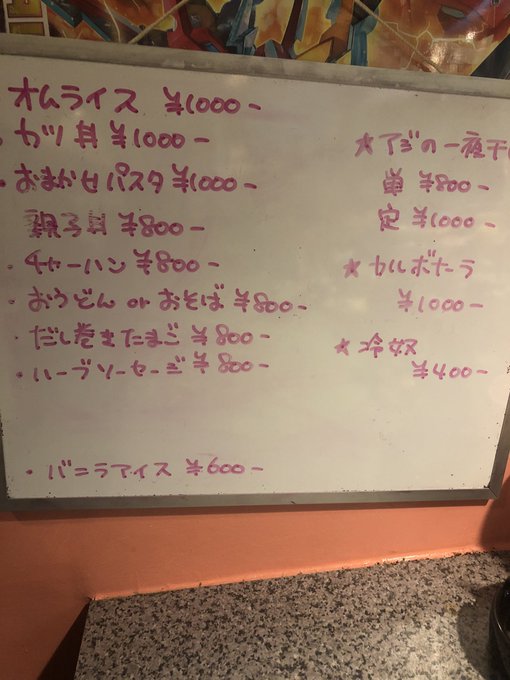 ・オムライス ¥1000-
・カツ丼 ¥1000-
・おまかせパスタ ¥1000-
親子丼 ¥800-
・チャーハン ¥800-
・おうどん or おそば ¥800-
・だし巻きたまご ¥800-
・ハーブソーセージ ¥800-
・バニラアイス ¥600-
★アジの一夜干
単 ¥800-
定 ¥1000-
★カルボナーラ
¥1000-
★冷奴
¥400-